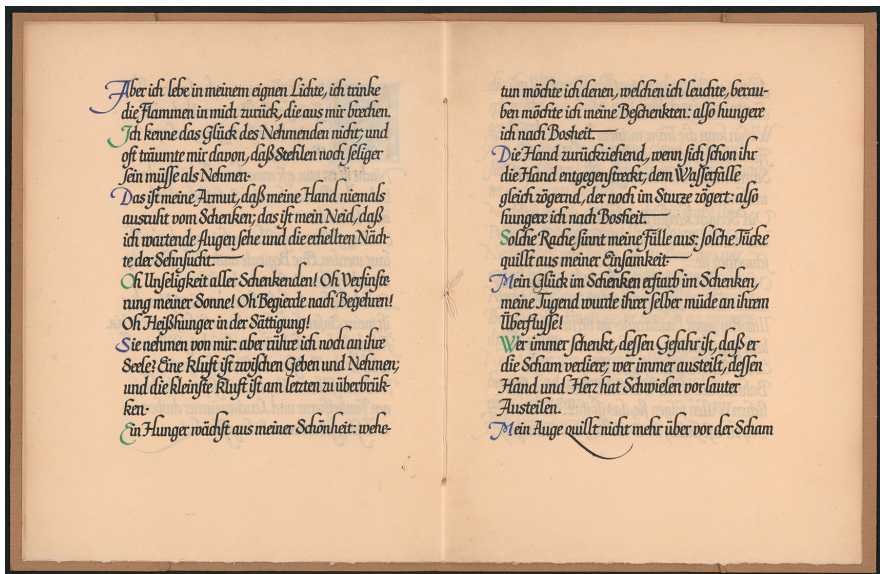 Aber ich lebe in meinem eignen Lichte, ich trinke
die Flammen in mich zurück, die aus mir brechen.
Ich kenne das Glück des Nehmenden nicht; und
oft träumte mir davon, daß Stehlen noch seliger
sein müsse als Nehmen.
Das ist meine Armut, daß meine Hand niemals
ausruht vom Schenken; das ist mein Neid, daß
ich wartende Augen sehe und die erhellten Näch-
te der Sehnsucht.
Oh Unseligkeit aller Schenkenden! Oh Verfinste-
rung meiner Sonne! Oh Begierde nach Begehren!
Oh Heißhunger in der Sättigung!
Sie nehmen von mir: aber rühre ich noch an ihre
Seele? Eine Kluft ist zwischen Geben und Nehmen;
und die kleinste Kluft ist am letzten zu überbrük-
ken.
Ein Hunger wächst aus meiner Schönheit: wehe-
tun möchte ich denen, welchen ich leuchte, berau-
ben möchte ich meine Beschenkten: also hungere
ich nach Bosheit.
Die Hand zurückziehend, wenn sich schon ihr
die Hand entgegenstreckt; dem Wasserfalle
gleich zögernd, der noch im Sturze zögert: also
hungere ich nach Bosheit.
Solche Rache sinnt meine Fülle aus: solche Tücke
quillt aus meiner Einsamkeit.
Mein Glück im Schenken erstarb im Schenken,
meine Tugend wurde ihrer selber müde an ihrem
Überflusse!
Wer immer schenkt, dessen Gefahr ist, daß er
die Scham verliere; wer immer austeilt, dessen
Hand und Herz hat Schwielen vor lauter
Austeilen.
Mein Auge quillt nicht mehr über vor der Scham